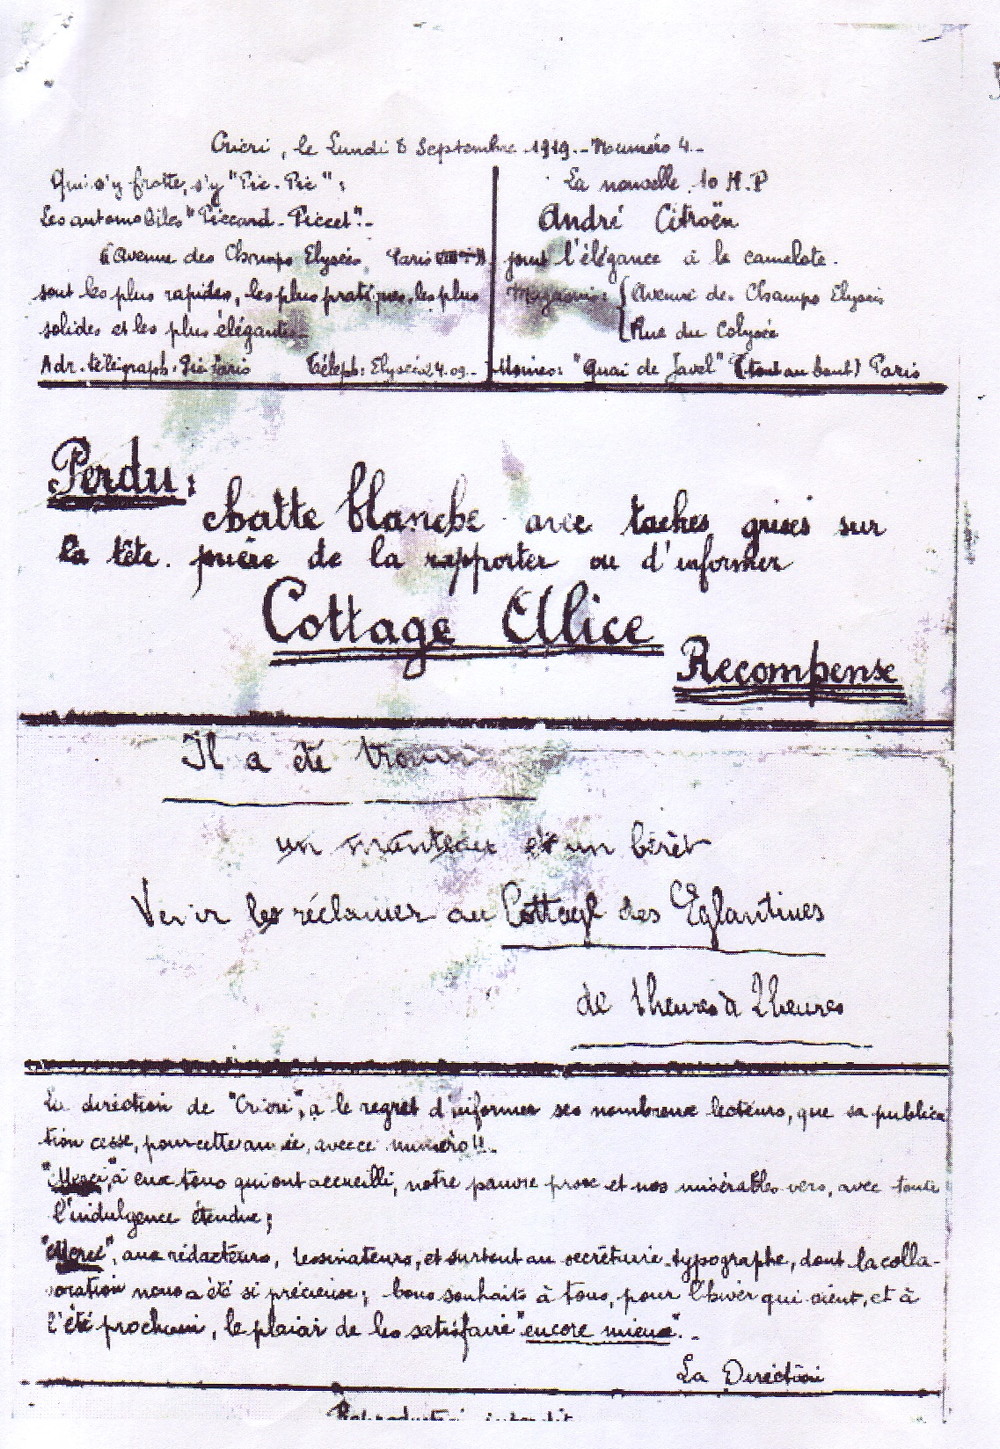 Cricri, le Lundi 8 Septembre 1919.- Numéro 4.-
Qui s'y frotte, s'y "Pic-Pic":
Les automobiles "Piccard-Piccet".-
6 Avenue des Champs Elysées Paris
sont les plus rapides, les plus pratiques, les plus
solides et les plus élégantes.-
Adr. télégraph: Pic Paris Téleph: Elysées 24.09.-
La nouvelle 10 H.P
André Citroën
joint l'élégance à la camelote.
Magasins: Avenue des Champs Elysées
Rue du Colysée
Usines: "Quai de Javel" (tout au bout) Paris
Perdu:
chatte blanche avec taches grises sur
la tête. prière de la rapporter ou d'informer
Cottage Alice
Recompense
Il a été trouvé
un manteau et un béret
Venir les réclamer au Cottage des Eglantines
de 1 heures à 2 heures
La direction de "Cricri", a le regret d'informer ses nombreux lecteurs, que sa publica
tion cesse, pour cette année, avec ce numéro!!.
"Merci", à eux tous qui ont accueilli, notre pauvre prose et nos misérables vers, avec toute
l'indulgence étendue;
"Merci", aux rédacteurs, dessinateurs, et surtout au secrétaire-typographe, dont la colla-
boration nous a été si précieuse; bons souhaits à tous, pour l'hiver qui vient, et à
l'été prochain, le plaisir de les satisfaire "encore mieux".-
La Direction
Reproduction interdite